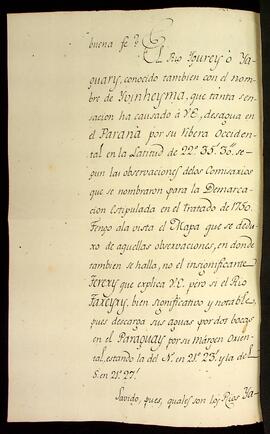 buena fe?
El Rio Ygurey ò Ya-
guary, conocido tambien con el nom-
bre de Yvinheyma, que tanta sen-
sacion ha causado à V.E., desagua en
el Paranà por su ribera Occiden-
tal en la Latitud de 22º 35' 36'', se-
gun las observaciones delos Comisarios
que se nombraron para la Demarca-
cion Estipulada en el tratado de 1750.
Tengo ala vista el Mapa que se dedu-
xo de aquellas observaciones, en donde
tambien se halla, no el insignificante
que explica V.E. pero si el Rio
bien significativo y notable,
pues descarga sus aguas por dos bocas
en el Paraguay por su màrgen Orien-
tal, estando la del N. en 21º 23' y la del
S. en 21º 27'.
Savido, pues, quales son los Rios Ya-